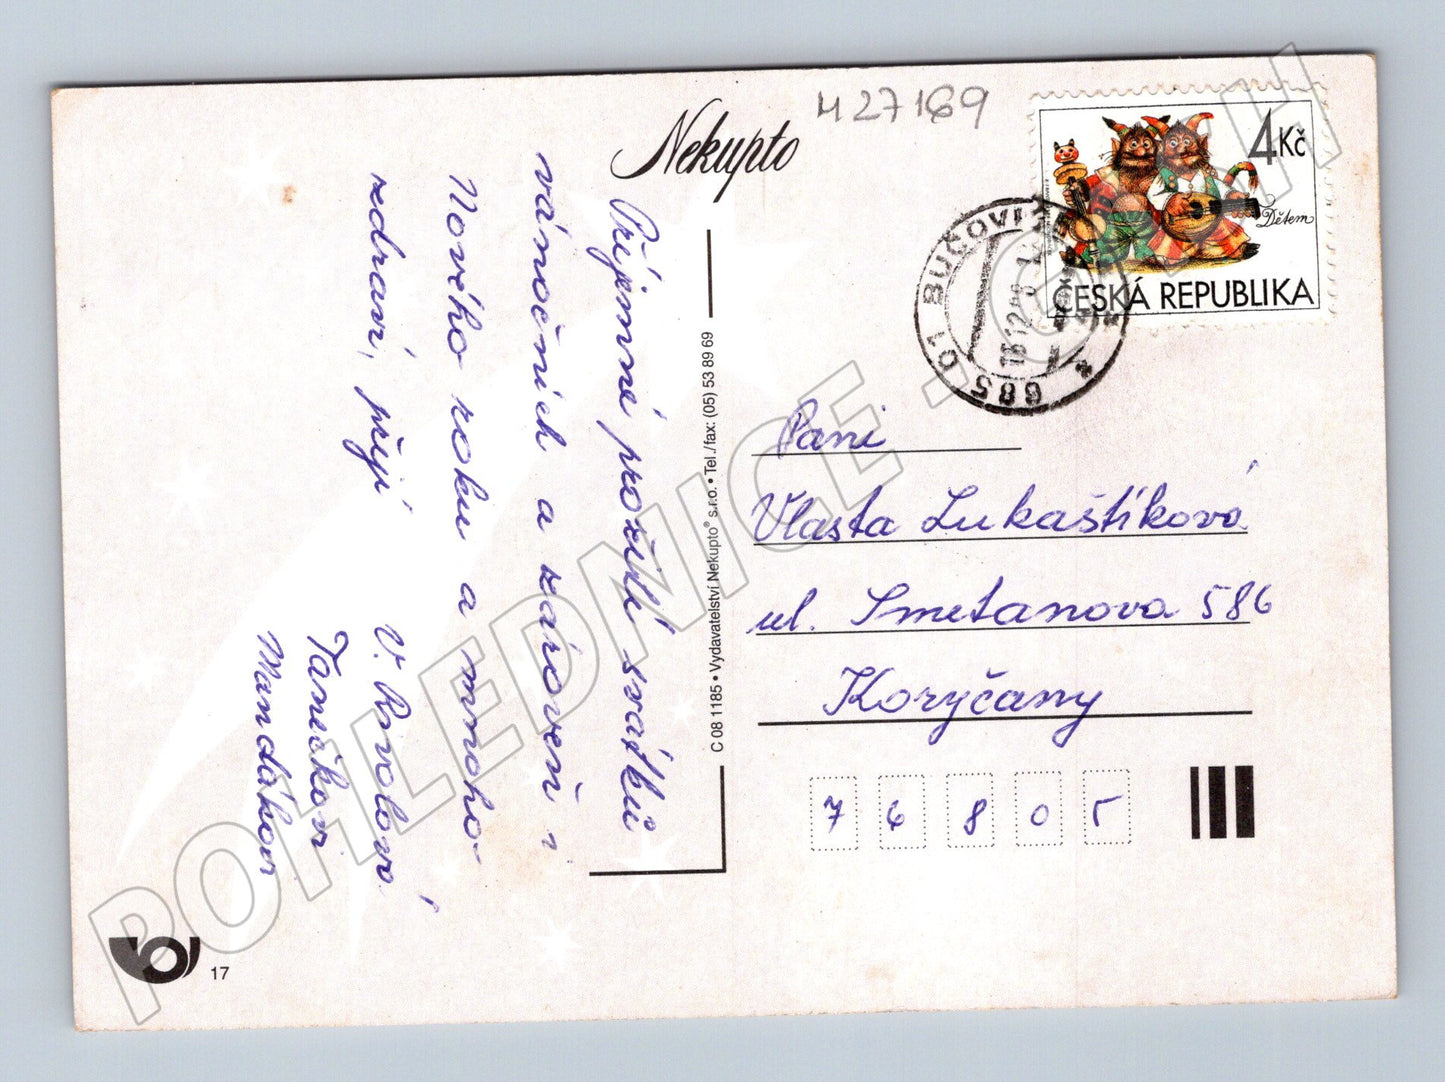 Nekupto
M 27169
4Kč
Dětem
ČESKÁ REPUBLIKA
685 01 BUČOVICE
Příjemné prožití svátků
vánočních a zároveň
Nového roku a mnoho
zdraví, přejí
V. Hrvolovi
Tanečkovi
Mandákovi
C 08 1185 • Vydavatelství Nekupto® s.r.o. • Tel./fax: (05) 53 89 69
Paní
Vlasta Lukaštíková
ul. Smetanova 586
Koryčany
7 6 8 0 5
17
POHLEDNICE - GMH